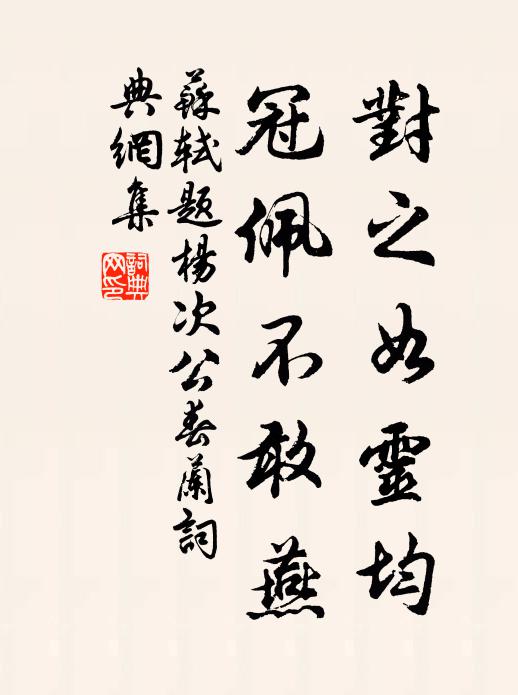 對之如靈均
冠佩不敢燕
蘇軾題楊次公春蘭詞
典網集
詞典網印